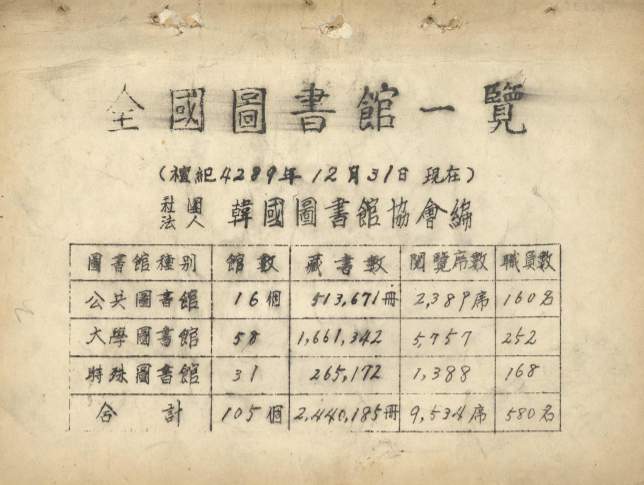 全國圖書館一覽
(檀紀4289年12月31日 現在)
社團法人 韓國圖書館協會編
圖書館種別 館數 藏書數 閱覽席數 職員數
公共圖書館 16個 513,671冊 2,389席 160名
大學圖書館 58 1,661,342 5,757 252
特殊圖書館 31 265,172 1,388 168
合計 105個 2,440,185冊 9,534席 580名